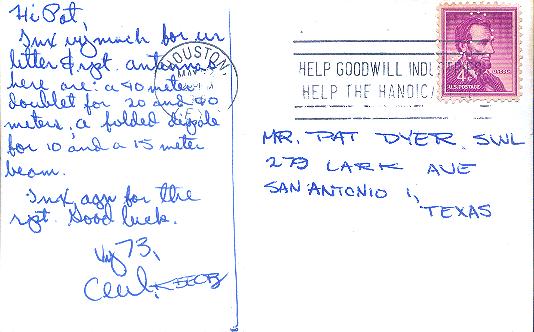 Hi Pat,
Tnx vy much for ur
letter & rpt. antennas
here are: a 40 meter
doublet for 20 and 40
meters, a folded dipole
for 10 and a 15 meter
beam.
Tnx agn for the
rpt. Good luck.
Vy 73,
Cecil,
HOUSTON
HELP GOODWILL INDUSTRIES
HELP THE HANDICA
4¢
U.S. POSTAGE
MR. PAT DYER SWL
279 LARK AVE
SAN ANTONIO 1,
TEXAS